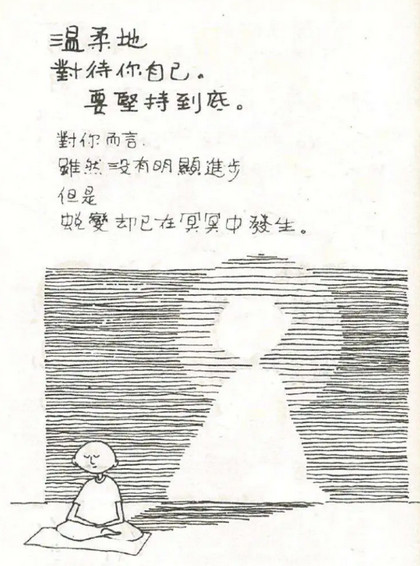 溫柔地
對待你自己。
要堅持到底。
對你而言.
雖然沒有明顯進步
但是
蛻變却已在冥冥中發生。